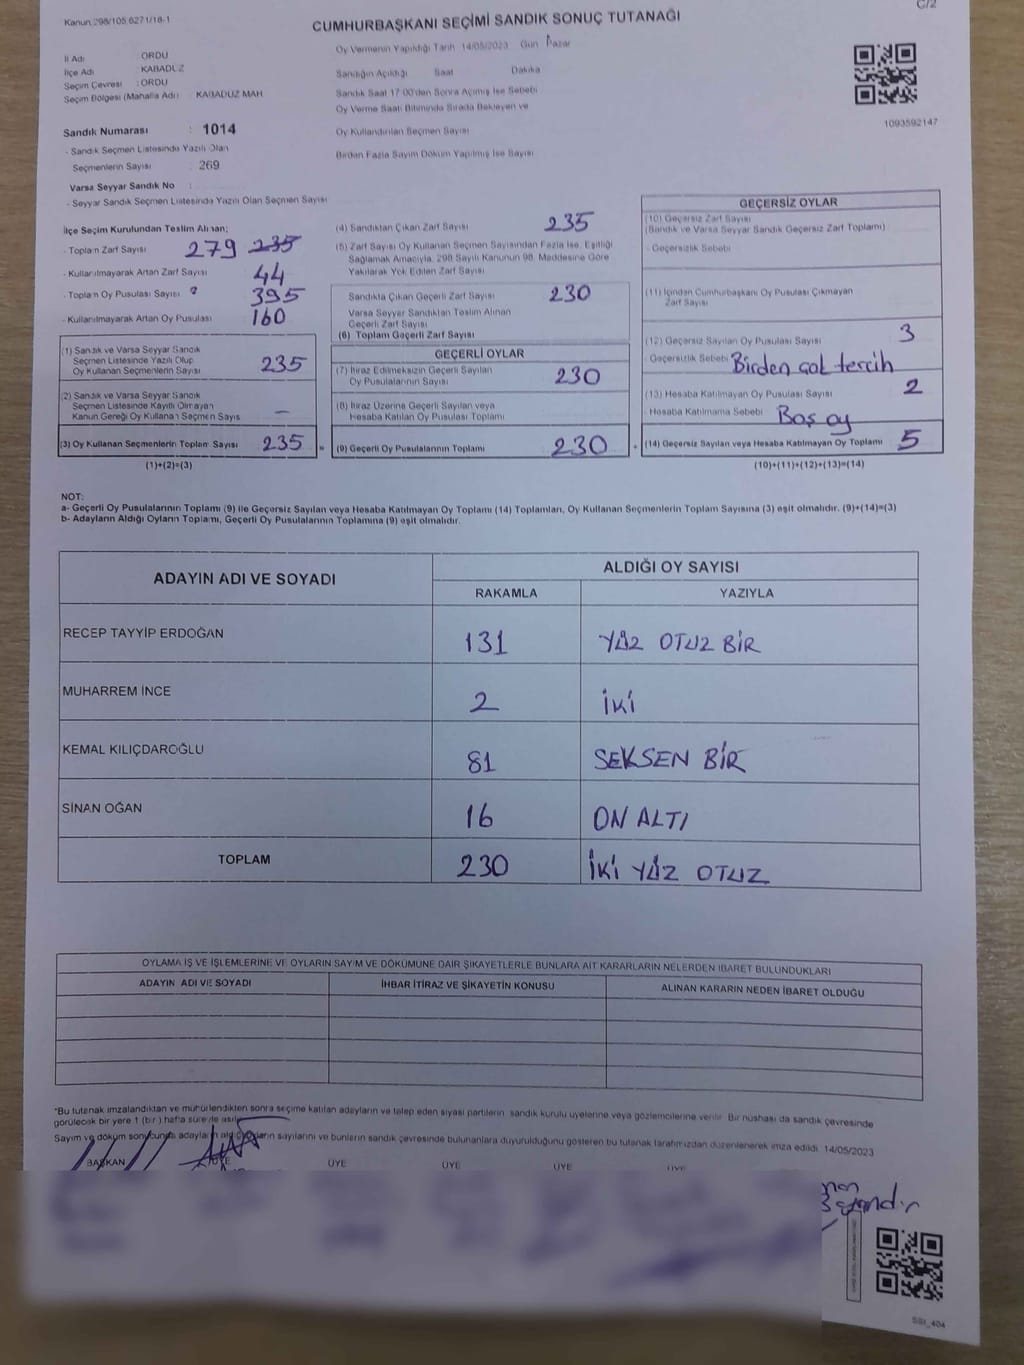 Kanun:298/105,6271/18-1
C/2
CUMHURBAŞKANI SEÇİMİ SANDIK SONUÇ TUTANAĞI
İl Adı ORDU
İlçe Adı KABADÜZ
Seçim Çevresi : ORDU
Seçim Bölgesi (Mahalle Adı) KABADÜZ MAH
Sandık Numarası : 1014
- Sandık Seçmen Listesinde Yazılı Olan
Seçmenlerin Sayısı : 269
Varsa Seyyar Sandık No :
- Seyyar Sandık Seçmen Listesinde Yazılı Olan Seçmen Sayısı
Oy Vermenin Yapıldığı Tarih 14/05/2023 Gün Pazar
Sandığın Açıldığı Saat Dakika
Sandık Saat 17:00'den Sonra Açılmış İse Sebebi
Oy Verme Saati Bitiminde Sırada Bekleyen ve
Oy Kullandırılan Seçmen Sayısı
Birden Fazla Sayım Döküm Yapılmış İse Sayısı
1093592147
İlçe Seçim Kurulundan Teslim Alınan;
- Toplam Zarf Sayısı 279 235
- Kullanılmayarak Artan Zarf Sayısı 44
- Toplam Oy Pusulası Sayısı 395
- Kullanılmayarak Artan Oy Pusulası 160
(1) Sandık ve Varsa Seyyar Sandık
Seçmen Listesinde Yazılı Olup
Oy Kullanan Seçmenlerin Sayısı 235
(2) Sandık ve Varsa Seyyar Sandık
Seçmen Listesinde Kayıtlı Olmayan
Kanun Gereği Oy Kullanan Seçmen Sayısı –
(3) Oy Kullanan Seçmenlerin Toplam Sayısı 235 =
(1)+(2)=(3)
(4) Sandıktan Çıkan Zarf Sayısı 235
(5) Zarf Sayısı Oy Kullanan Seçmen Sayısından Fazla İse, Eşitliği
Sağlamak Amacıyla, 298 Sayılı Kanunun 98. Maddesine Göre
Yakılarak Yok Edilen Zarf Sayısı
Sandıkta Çıkan Geçerli Zarf Sayısı 230
Varsa Seyyar Sandıktan Teslim Alınan
Geçerli Zarf Sayısı
(6) Toplam Geçerli Zarf Sayısı
GEÇERLİ OYLAR
(7) İtiraz Edilmeksizin Geçerli Sayılan
Oy Pusulalarının Sayısı 230
(8) İtiraz Üzerine Geçerli Sayılan veya
Hesaba Katılan Oy Pusulası Toplamı
(9) Geçerli Oy Pusulalarının Toplamı 230 +
GEÇERSİZ OYLAR
(10) Geçersiz Zarf Sayısı
(Sandık ve Varsa Seyyar Sandık Geçersiz Zarf Toplamı)
- Geçersizlik Sebebi
(11) İçinden Cumhurbaşkanı Oy Pusulası Çıkmayan
Zarf Sayısı
(12) Geçersiz Sayılan Oy Pusulası Sayısı 3
- Geçersizlik Sebebi Birden çok tercih
(13) Hesaba Katılmayan Oy Pusulası Sayısı 2
- Hesaba Katılmama Sebebi Boş oy
(14) Geçersiz Sayılan veya Hesaba Katılmayan Oy Toplamı 5
(10)+(11)+(12)+(13)=(14)
NOT:
a- Geçerli Oy Pusulalarının Toplamı (9) ile Geçersiz Sayılan veya Hesaba Katılmayan Oy Toplamı (14) Toplamları, Oy Kullanan Seçmenlerin Toplam Sayısına (3) eşit olmalıdır. (9)+(14)=(3)
b- Adayların Aldığı Oyların Toplamı, Geçerli Oy Pusulalarının Toplamına (9) eşit olmalıdır.
ADAYIN ADI VE SOYADI ALDIĞI OY SAYISI
RAKAMLA YAZIYLA
RECEP TAYYİP ERDOĞAN 131 YÜZ OTUZ BİR
MUHARREM İNCE 2 İKİ
KEMAL KILIÇDAROĞLU 81 SEKSEN BİR
SİNAN OĞAN 16 ON ALTI
TOPLAM 230 İKİ YÜZ OTUZ
OYLAMA İŞ VE İŞLEMLERİNE VE OYLARIN SAYIM VE DÖKÜMÜNE DAİR ŞİKAYETLERLE BUNLARA AİT KARARLARIN NELERDEN İBARET BULUNDUKLARI
ADAYIN ADI VE SOYADI İHBAR İTİRAZ VE ŞİKAYETİN KONUSU ALINAN KARARIN NEDEN İBARET OLDUĞU
*Bu tutanak imzalandıktan ve mühürlendikten sonra seçime katılan adayların ve talep eden siyasi partilerin sandık kurulu üyelerine veya gözlemcilerine verilir. Bir nüshası da sandık çevresinde
görülecek bir yere 1 (bir) hafta süreyle asılır.
Sayım ve döküm sonucunda adayların aldığı oyların sayılarını ve bunların sandık çevresinde bulunanlara duyurulduğunu gösteren bu tutanak tarafımızdan düzenlenerek imza edildi. 14/05/2023
BAŞKAN ÜYE ÜYE ÜYE ÜYE ÜYE
SSI_404